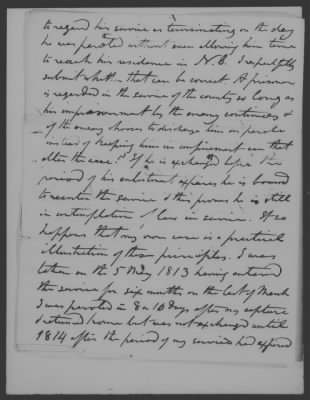 to regard his service as terminating on the day
he was paroled without even allowing him time
to reach his residence in N.C. I respectfully
submit whether that can be correct A prisoner
is regarded in the service of the country so long as
his imprisonment by the enemy continues &
if the enemy choses to discharge him on parole
instead of keeping him in confinement can that
alter the case? If he is exchanged before the
period of his enlistment expires he is bound
to reenter the service & this proves he is still
in contemplation of law in service. It so
happens that my own case is a practical
illustration of these principles. I was
taken on the 5 May 1813 having entered
the service for six months on the last of March
I was paroled in 8 or 10 days after my capture
& returned home but was not exchanged until
1814 after the period of my services had expired